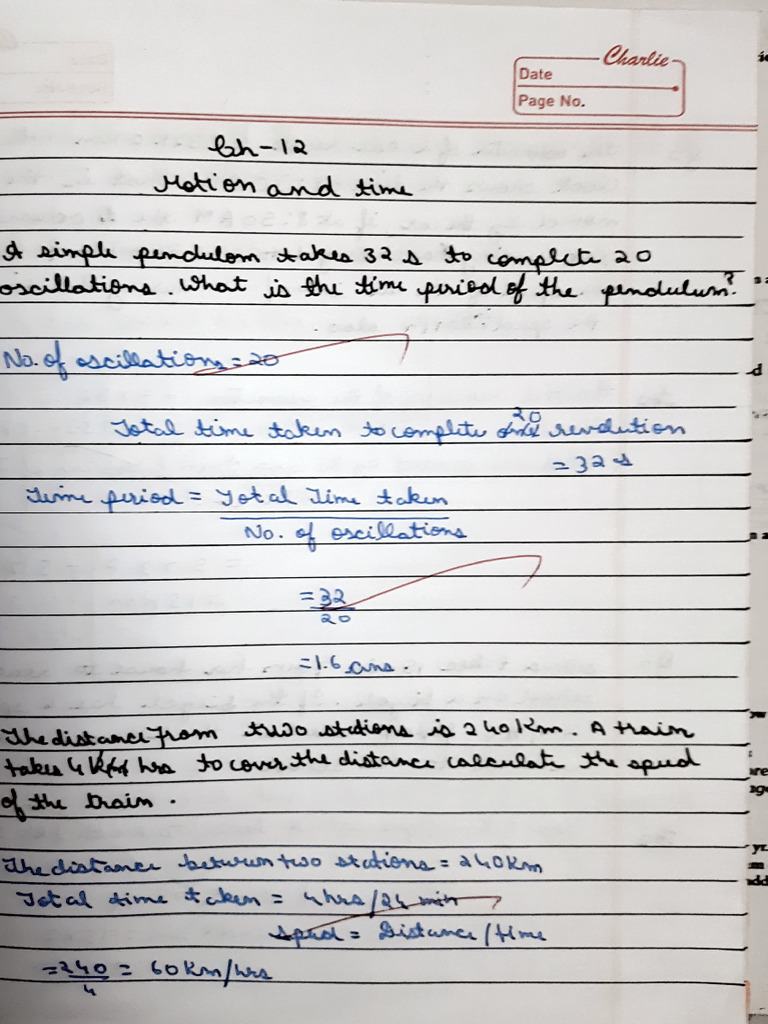 Charlie
Date
Page No.
Ch-12
Motion and time
A simple pendulom takes 32 s to complete 20
oscillations. What is the time period of the pendulum?
No. of oscillations = 20
20
Total time taken to complete revolution
= 32 s
Time period = Total Time taken
No. of oscillations
= 32
20
= 1.6 ans.
The distance from two stations is 240 Km. A train
takes 4 hrs to cover the distance calculate the speed
of the train.
The distance between two stations = 240 Km
Total time taken = 4 hrs/24 min
Speed = Distance/time
= 240 = 60 Km/hrs
4